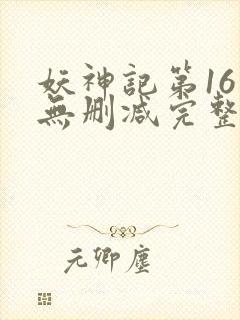 妖神記第16
無删减完整
元卿塵